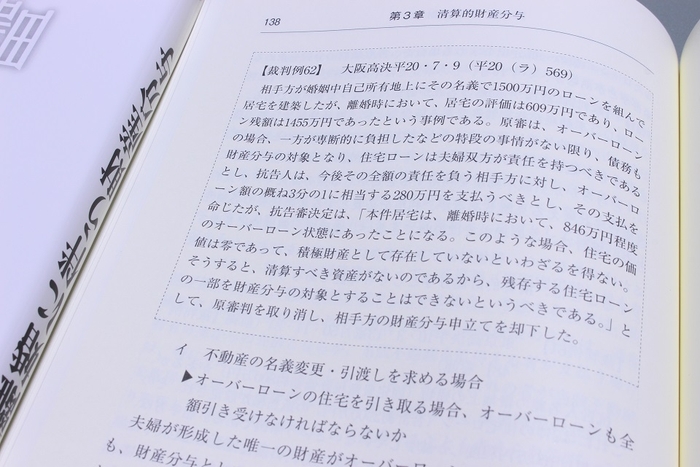 138
第3章 清算的財産分与
【裁判例62】 大阪高決平20・7・9（平20（ラ）569）
相手方が婚姻中自己所有地上にその名義で1500万円のローンを組んで
居宅を建築したが、離婚時において、居宅の評価は609万円であり、ロー
ン残額は1455万円であったという事例である。原審は、オーバーローン
の場合、一方が専断的に負担したなどの特段の事情がない限り、債務も
財産分与の対象となり、住宅ローンは夫婦双方が責任を持つべきである
とし、抗告人は、今後その全額の責任を負う相手方に対し、オーバーロ
ーン額の概ね3分の1に相当する280万円を支払うべきとし、その支払を
命じたが、抗告審決定は、「本件居宅は、離婚時において、846万円程度
のオーバーローン状態にあったことになる。このような場合、住宅の価
値は零であって、積極財産として存在していないといわざるを得ない。
そうすると、清算すべき資産がないのであるから、残存する住宅ローン
の一部を財産分与の対象とすることはできないというべきである。」と
して、原審判を取り消し、相手方の財産分与申立てを却下した。
イ 不動産の名義変更・引渡しを求める場合
▶オーバーローンの住宅を引き取る場合、オーバーローンも全
額引き受けなければならないか
夫婦が形成した唯一の財産がオーバーロー
も、財産分与と